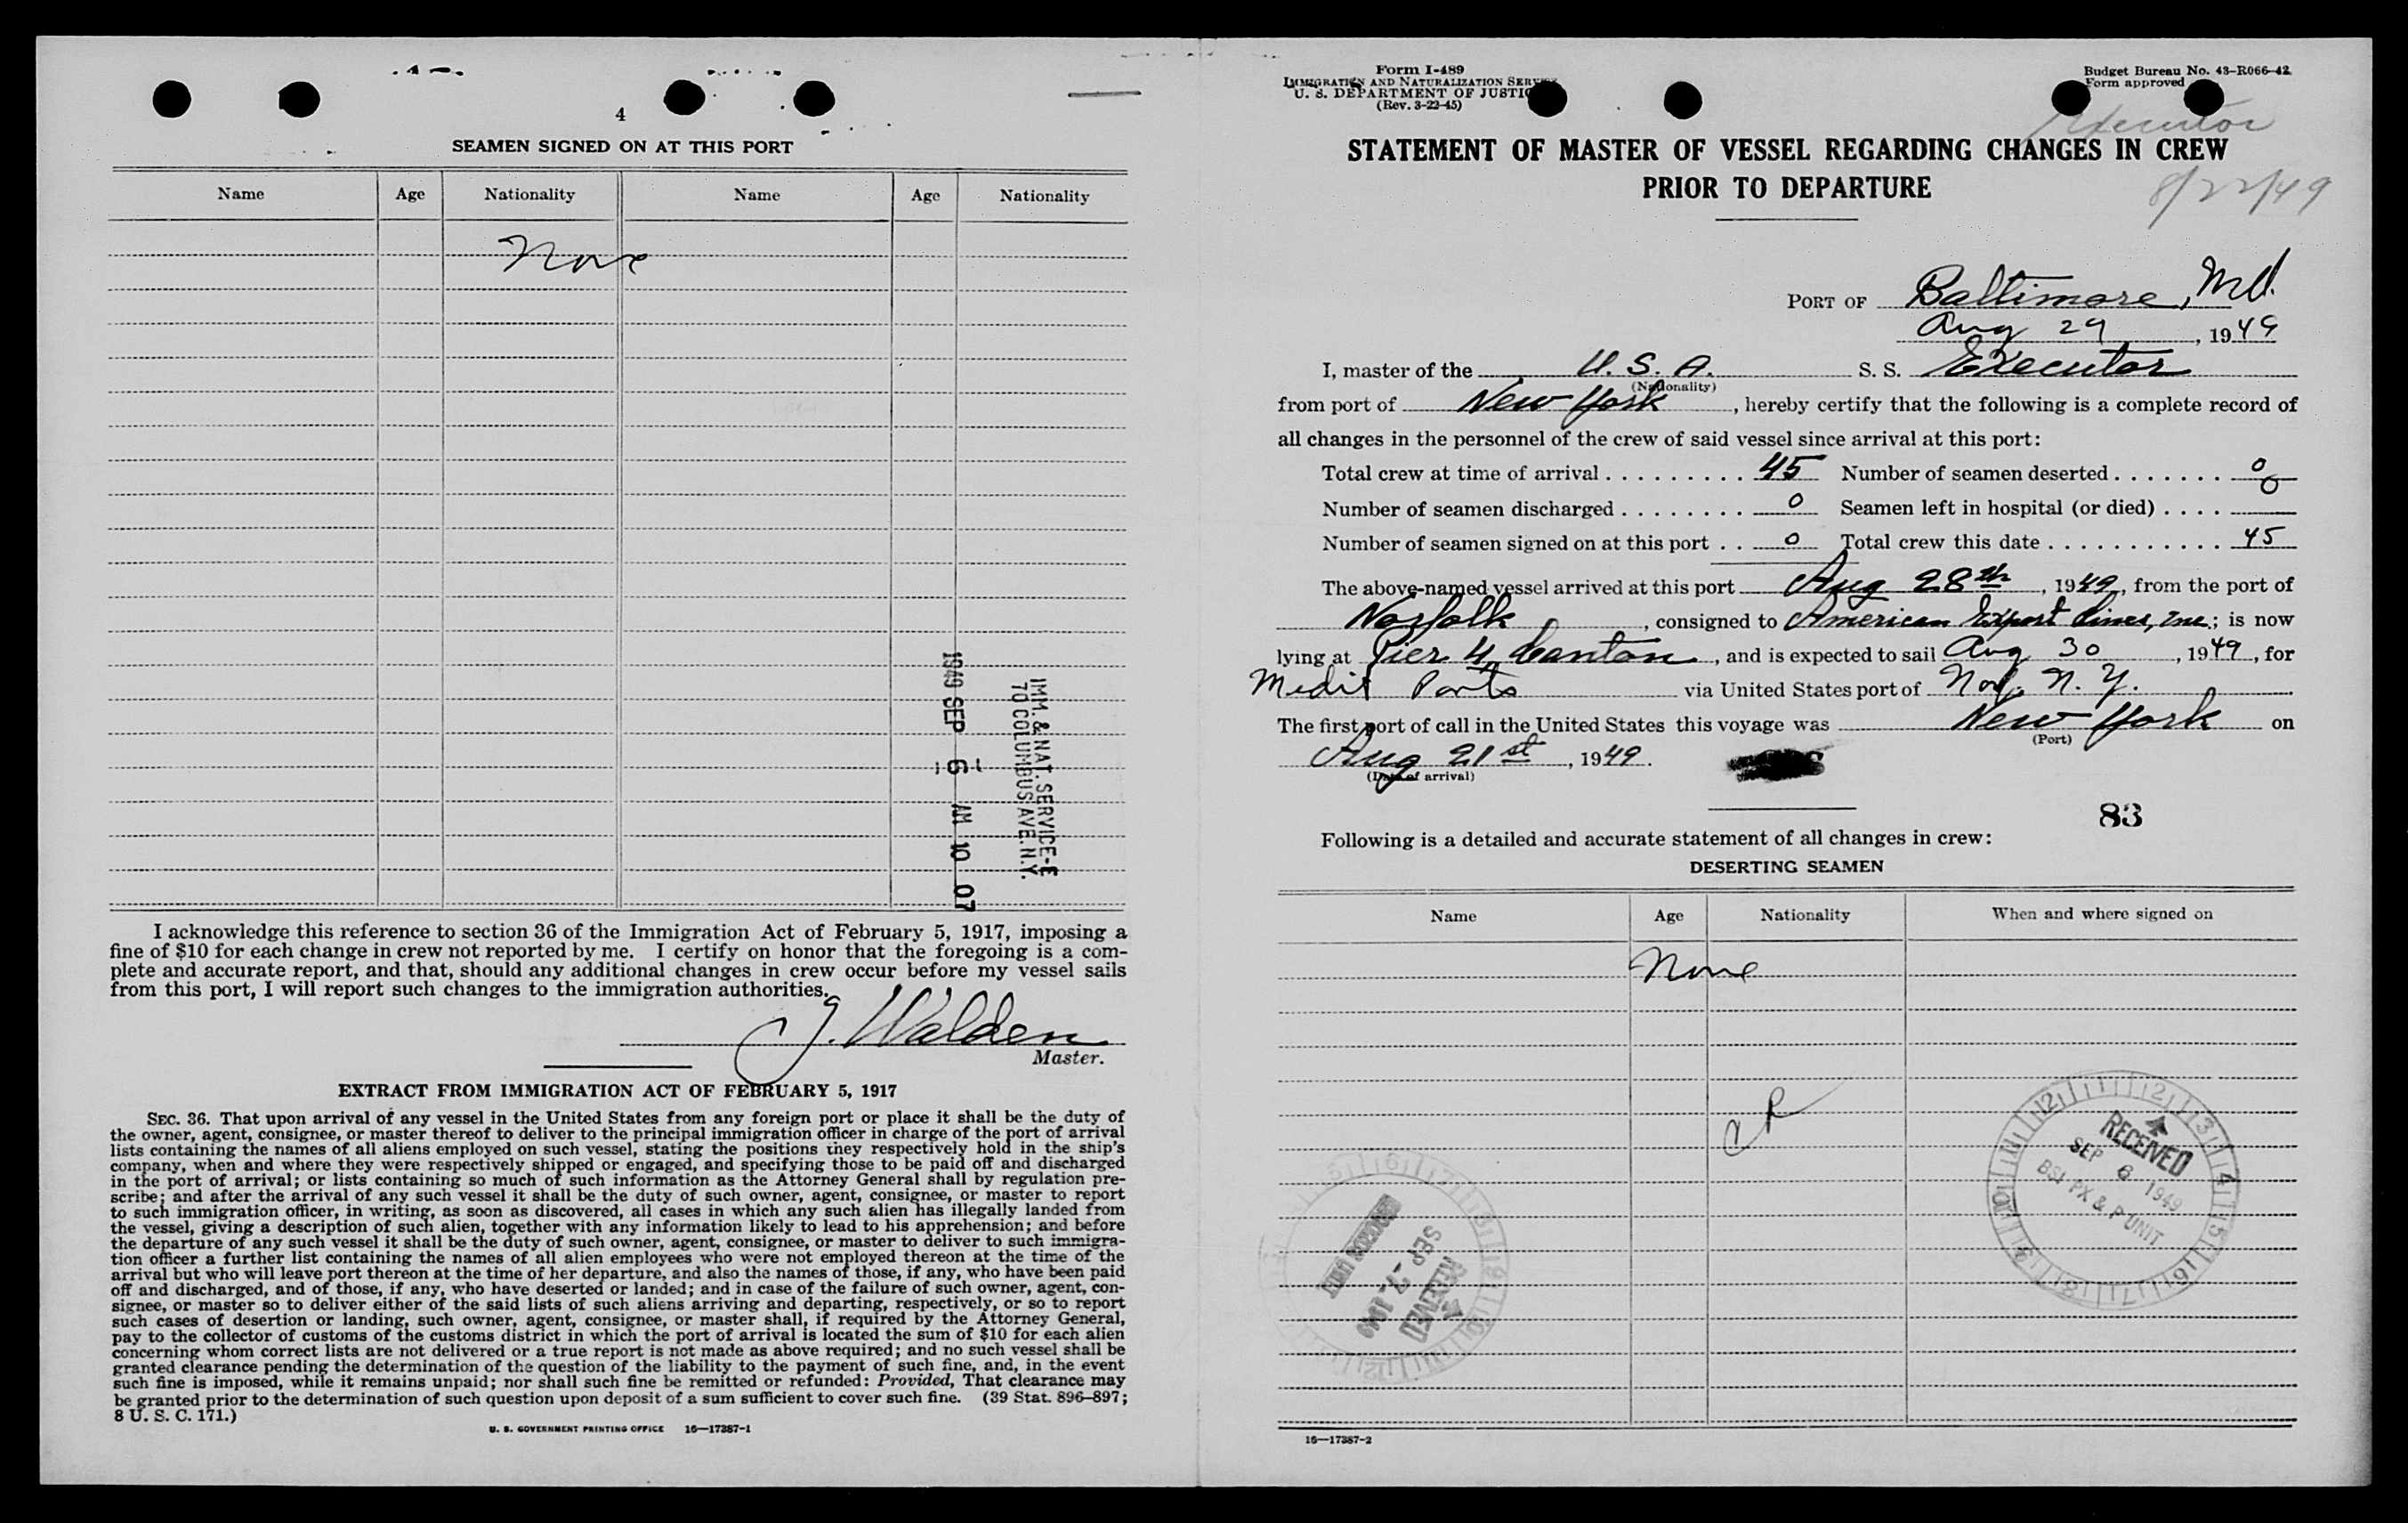 4
SEAMEN SIGNED ON AT THIS PORT
Name Age Nationality Name Age Nationality
None
1949 SEP -6 AM 10 07
IMM. & NAT. SERVICE-E
70 COLUMBUS AVE. N.Y.
I acknowledge this reference to section 36 of the Immigration Act of February 5, 1917, imposing a
fine of $10 for each change in crew not reported by me. I certify on honor that the foregoing is a com-
plete and accurate report, and that, should any additional changes in crew occur before my vessel sails
from this port, I will report such changes to the immigration authorities.
J. Walden
Master.
EXTRACT FROM IMMIGRATION ACT OF FEBRUARY 5, 1917
SEC. 36. That upon arrival of any vessel in the United States from any foreign port or place it shall be the duty of
the owner, agent, consignee, or master thereof to deliver to the principal immigration officer in charge of the port of arrival
lists containing the names of all aliens employed on such vessel, stating the positions they respectively hold in the ship's
company, when and where they were respectively shipped or engaged, and specifying those to be paid off and discharged
in the port of arrival; or lists containing so much of such information as the Attorney General shall by regulation pre-
scribe; and after the arrival of any such vessel it shall be the duty of such owner, agent, consignee, or master to report
to such immigration officer, in writing, as soon as discovered, all cases in which any such alien has illegally landed from
the vessel, giving a description of such alien, together with any information likely to lead to his apprehension; and before
the departure of any such vessel it shall be the duty of such owner, agent, consignee, or master to deliver to such immigra-
tion officer a further list containing the names of all alien employees who were not employed thereon at the time of the
arrival but who will leave port thereon at the time of her departure, and also the names of those, if any, who have been paid
off and discharged, and of those, if any, who have deserted or landed; and in case of the failure of such owner, agent, con-
signee, or master so to deliver either of the said lists of such aliens arriving and departing, respectively, or so to report
such cases of desertion or landing, such owner, agent, consignee, or master shall, if required by the Attorney General,
pay to the collector of customs of the customs district in which the port of arrival is located the sum of $10 for each alien
concerning whom correct lists are not delivered or a true report is not made as above required; and no such vessel shall be
granted clearance pending the determination of the question of the liability to the payment of such fine, and, in the event
such fine is imposed, while it remains unpaid; nor shall such fine be remitted or refunded: Provided, That clearance may
be granted prior to the determination of such question upon deposit of a sum sufficient to cover such fine. (39 Stat. 896-897;
8 U. S. C. 171.)
U. S. GOVERNMENT PRINTING OFFICE 16—17387-1
Form I-489
IMMIGRATION AND NATURALIZATION SERVICE
U. S. DEPARTMENT OF JUSTICE
(Rev. 3-22-45)
Budget Bureau No. 43-R066-42
Form approved
Executor
STATEMENT OF MASTER OF VESSEL REGARDING CHANGES IN CREW
PRIOR TO DEPARTURE
8/22/49
PORT OF Baltimore, Md.
Aug 29, 1949
I, master of the U. S. A. S. S. Executor
(Nationality)
from port of New York, hereby certify that the following is a complete record of
all changes in the personnel of the crew of said vessel since arrival at this port:
Total crew at time of arrival . . . . . . . . . 45 Number of seamen deserted . . . . . . . 0
Number of seamen discharged . . . . . . . . 0 Seamen left in hospital (or died) . . . . 0
Number of seamen signed on at this port . . 0 Total crew this date . . . . . . . . . . . 45
The above-named vessel arrived at this port Aug 28th, 1949, from the port of
Norfolk, consigned to American Export Lines, Inc; is now
lying at Pier 4 Canton, and is expected to sail Aug 30, 1949, for
Medit Ports via United States port of Nof. N. Y.
The first port of call in the United States this voyage was New York on
(Port)
Aug 21st, 1949.
(Date of arrival)
83
Following is a detailed and accurate statement of all changes in crew:
DESERTING SEAMEN
Name Age Nationality When and where signed on
None
RECEIVED
SEP 6 1949
BSI PX & P UNIT
RECEIVED
SEP -7 1949
16—17387-2